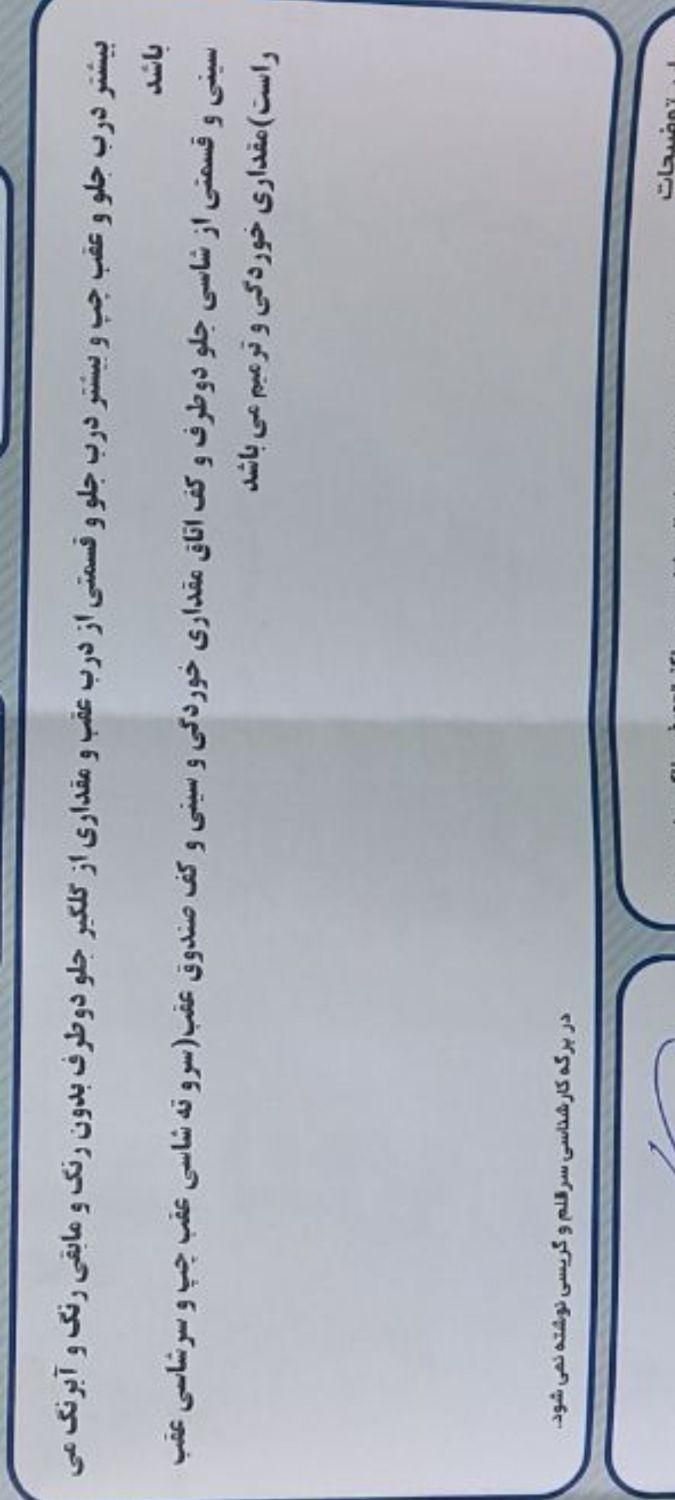 بیشتر درب جلو و عقب چپ و بیشتر درب جلو و قسمتی از درب عقب و مقداری از گلگیر جلو دوطرف بدون رنگ و مابقی رنگ و آبرنگ می
باشد
سینی و قسمتی از شاسی جلو دوطرف و کف اتاق مقداری خوردگی و سینی و کف صندوق عقب(سرو ته شاسی عقب چپ و سرشاسی عقب
راست)مقداری خوردگی و ترمیم می باشد
در برگه کارشناسی سرقلم و گریسی نوشته نمی شود.
توضیحات